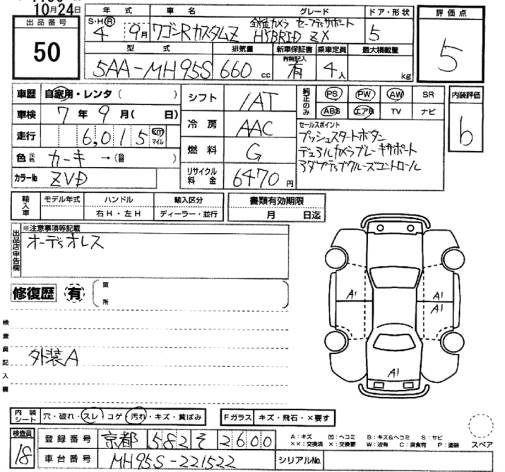 10月24日
出品番号 50
年式 車名 グレード ドア・形状 評価点
S・H・R 4年 9月 ワゴンRカスタムZ 全方位カメラ セーフティサポート HYBRID ZX 5 5
型式 排気量 新車保証書 乗車定員 最大積載量
5AA-MH95S 660cc 有 4人 kg
車歴 自家用・レンタ( )
車検 7年9月( 日)
走行 6,015 km マイル
色 カーキ→( )
カラーNo ZVD
シフト IAT
冷房 AAC
燃料 G
リサイクル料金 6470円
純正のみ PS PW AW SR
ABS エアB TV ナビ
内装評価 b
セールスポイント
プッシュスタートボタン
デュアルカメラブレーキサポート
アダプティブクルーズコントロール
輸入車 モデル年式 ハンドル 輸入区分
右H・左H ディーラー・並行
書類有効期限
月 日迄
出品店申告欄 ※注意事項等記載
オーディオレス
修復歴 有 箇所
検査員記入欄
外装A
A1
A1 A1
A1
内装シート 穴・破れ・スレ・コゲ・汚れ・キズ・黄ばみ
Fガラス キズ・飛石・×要す
A:キズ U:ヘコミ B:キズ&ヘコミ S:サビ
××:交換済 ×:交換要 W:波有 C:腐食有 P:塗装
スペア
検査員 18
登録番号 京都 582 そ 2600
車台番号 MH95S-221522
シリアルNo.